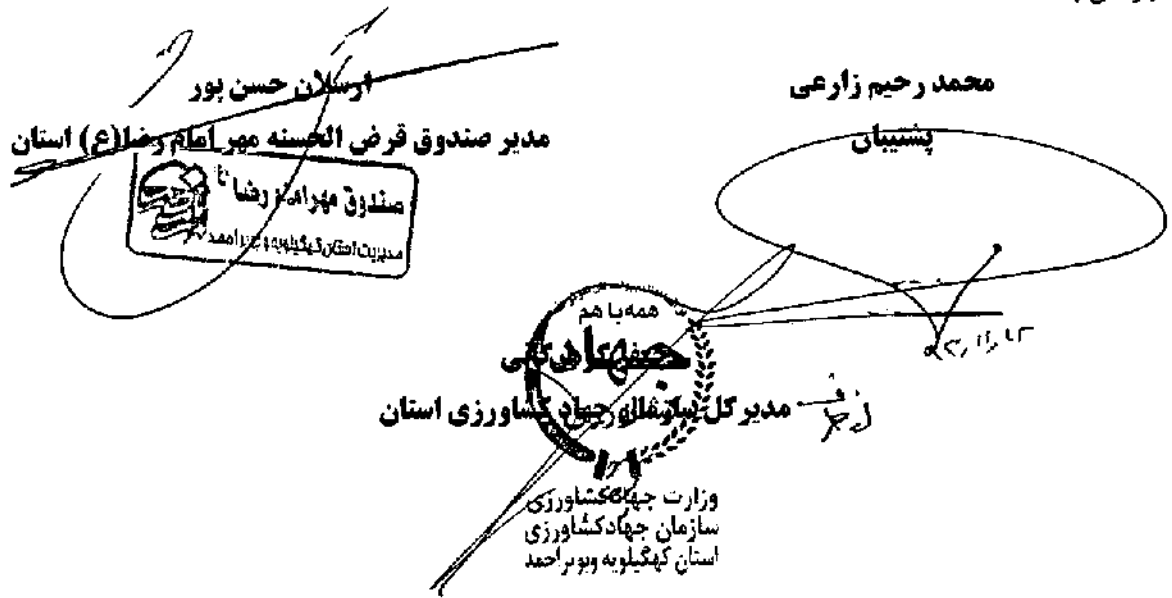 محمد رحیم زارعی
پشتیبان
ارسلان حسن پور
مدیر صندوق قرض الحسنه مهر امام رضا(ع) استان
صندوق مهر امام رضا
مدیریت استان کهگیلویه و بویراحمد
همه با هم
جهاد
مدیر کل سازمان جهاد کشاورزی استان
وزارت جهادکشاورزی
سازمان جهادکشاورزی
استان کهگیلویه وبویراحمد